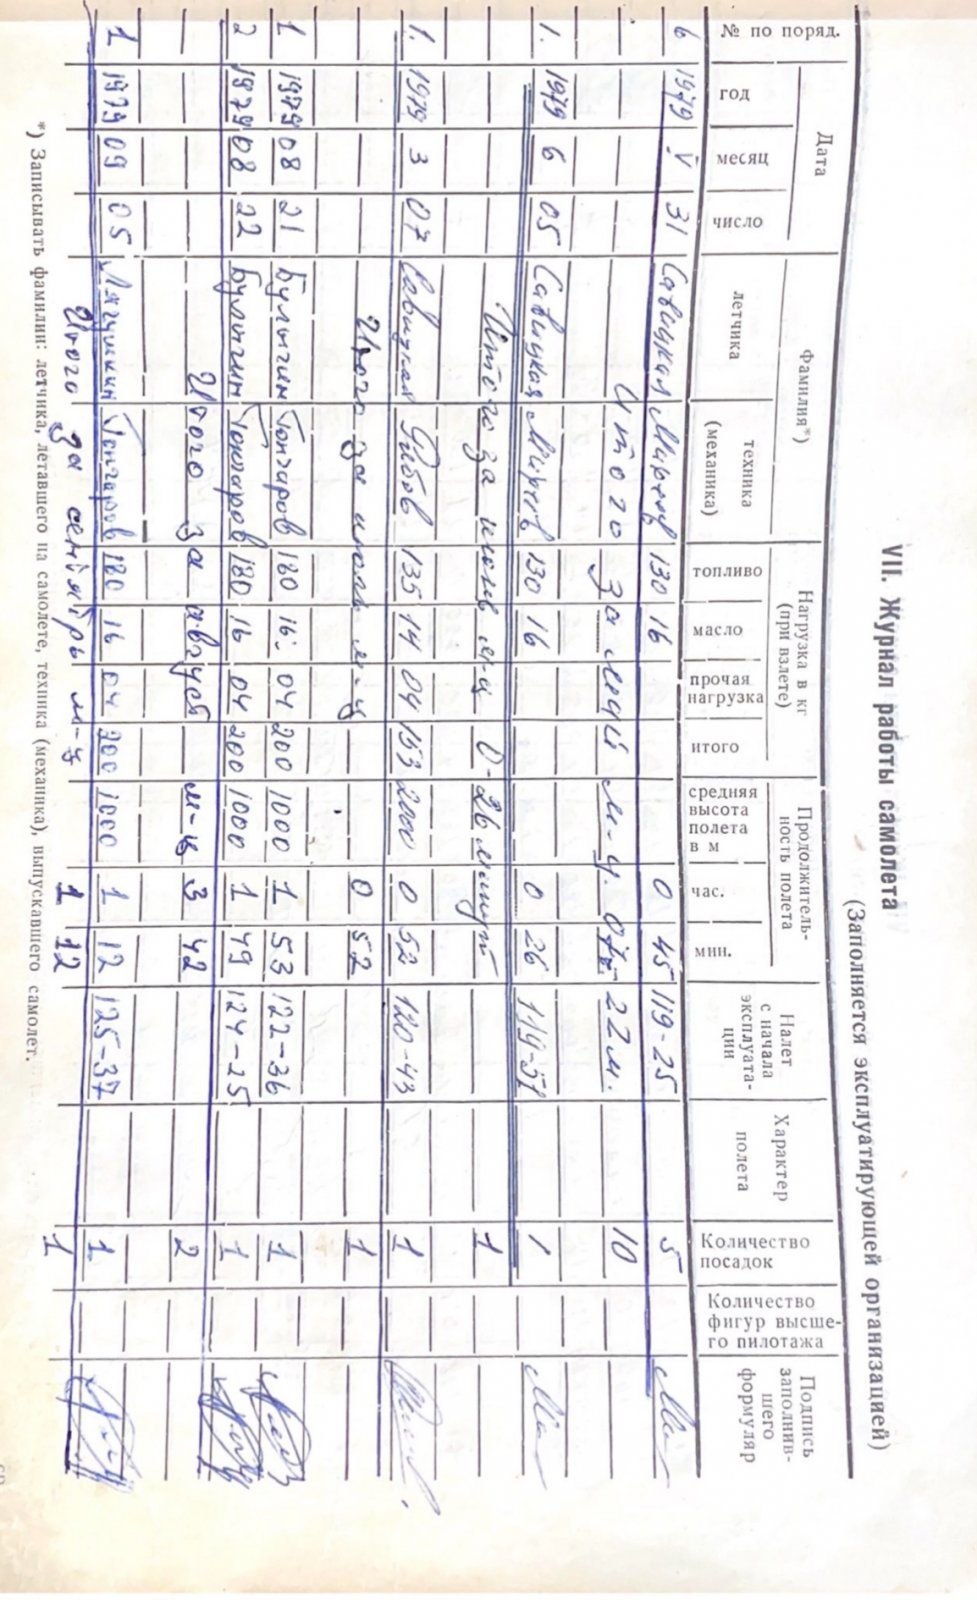 VII. Журнал работы самолета
(Заполняется эксплуатирующей организацией)
№ по поряд. | Дата | Фамилия*) | Нагрузка в кг (при взлете) | Продолжительность полета | Налет с начала эксплуатации | Характер полета | Количество посадок | Количество фигур высшего пилотажа | Подпись заполнившего формуляр
год | месяц | число | летчика | техника (механика) | топливо | масло | прочая нагрузка | итого | средняя высота полета в м | час. | мин.
6 1979 V 31 Савицкая 130 16 0 45 119-25 5
Итого за май м-ц. 07 22м. 10
1. 1979 6 05 Савицкая 130 16 0 26 119-51 1
Итого за июнь м-ц 0-26 минут 1
1. 1979 3 07 Савицкая Рябов 135 14 04 153 2000 0 52 120-43 1
Итого за июль м-ц 0 52 1
1 1979 08 21 Булыгин Гончаров 180 16 04 200 1000 1 53 122-36 1
2 1979 08 22 Булыгин Гончаров 180 16 04 200 1000 1 49 124-25 1
Итого за август м-ц 3 42 2
1 1979 09 05 Лягушкин Гончаров 180 16 04 200 1000 1 12 125-37 1
Итого за сентябрь м-ц 1 12 1
*) Записывать фамилии: летчика, летавшего на самолете, техника (механика), выпускавшего самолет.